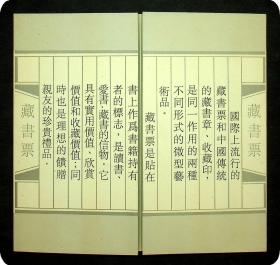 藏書票
國際上流行的
藏書票和中國傳統
的藏書章、收藏印，
是同一作用的兩種
不同形式的微型藝
術品。
藏書票是貼在
書上作爲書籍持有
者的標志，是讀書、
愛書、藏書的信物。它
具有實用價值、欣賞
價值和收藏價值；同
時也是理想的饋贈
親友的珍貴禮品。
藏書票